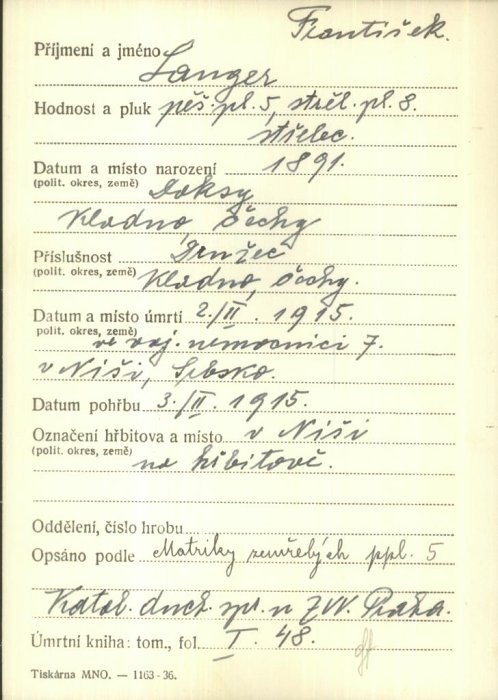 František.
Příjmení a jméno Langer
Hodnost a pluk pěš. pl. 5, střel. pl. 8.
střelec.
Datum a místo narození 1891.
(polit. okres, země) Doksy
Kladno, Čechy
Příslušnost Družec
(polit. okres, země) Kladno, Čechy.
Datum a místo úmrtí 2./II. 1915.
polit. okres, země)
ve voj. nemocnici 7.
v Niši, Srbsko.
Datum pohřbu 3./II. 1915.
Označení hřbitova a místo v Niši
(polit. okres, země) na hřbitově.
Oddělení, číslo hrobu
Opsáno podle Matriky zemřelých ppl. 5
Katol. duch. spr. u ZVV. Praha.
Úmrtní kniha: tom., fol. I. 48.
Tiskárna MNO. — 1163-36.